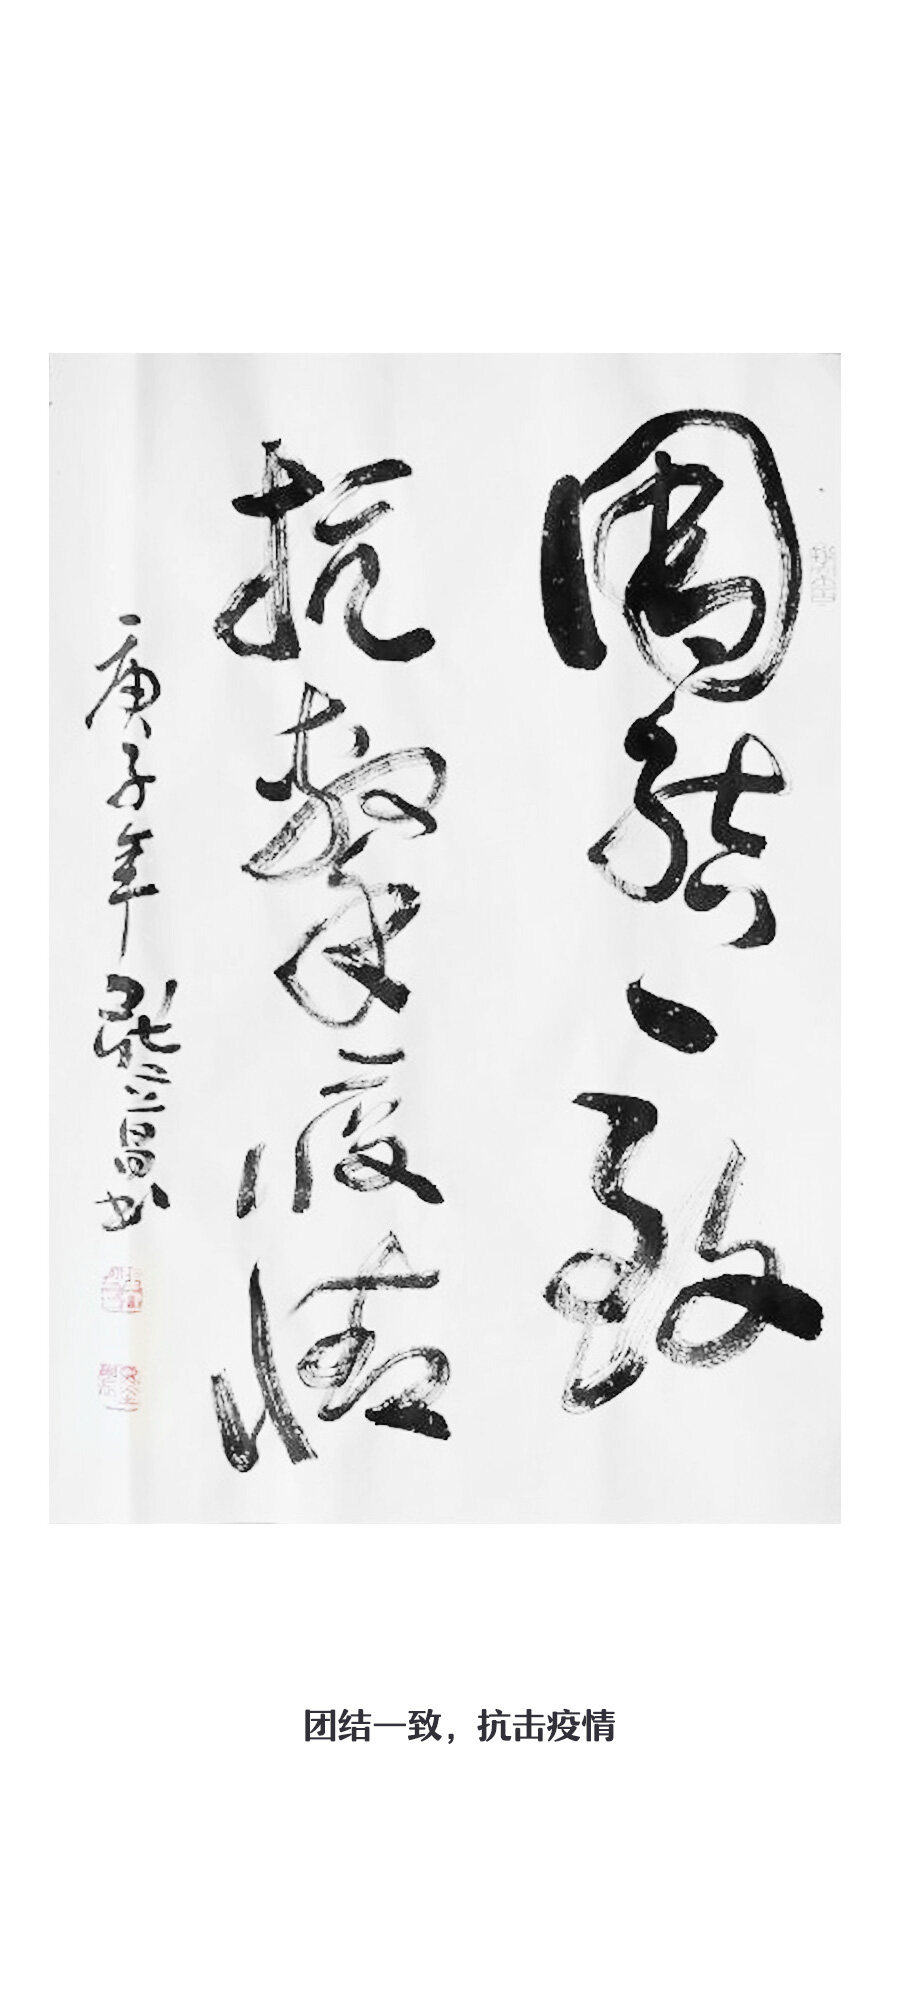 團結一致
抗擊疫情
庚子年
团结一致，抗击疫情